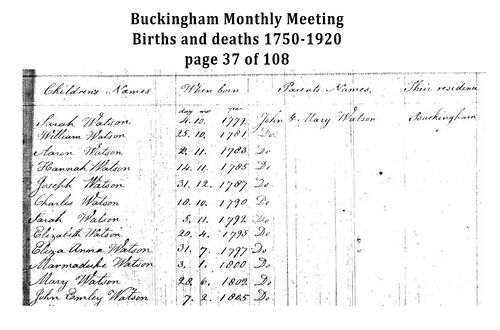 Buckingham Monthly Meeting
Births and deaths 1750-1920
page 37 of 108
Children's Names When born Parents Names, Their residence
day mo year
Sarah Watson 4. 10. 1779 John & Mary Watson Buckingham
William Watson 25. 10. 1781 Do
Aaron Watson 11. 1783 Do
Hannah Watson 14. 11. 1785 Do
Joseph Watson 31. 12. 1787 Do
Charles Watson 18. 10. 1790 Do
Sarah Watson 5. 11. 1792 Do
Elizabeth Watson 20. 4. 1795 Do
Eliza Anna Watson 31. 7. 1797 Do
Marmaduke Watson 3. 1. 1800 Do
Mary Watson 28. 6. 1802 Do
John Emley Watson 7. 2. 1805 Do